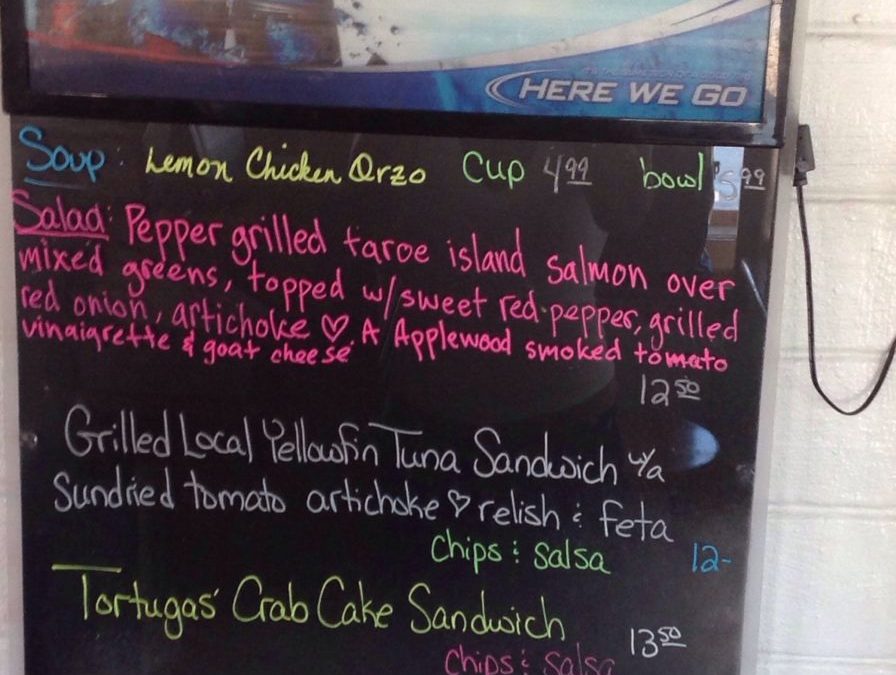 HERE WE GO
Soup: Lemon Chicken Orzo Cup 4.99 bowl 5.99
Salad: Pepper grilled taroe island salmon over
mixed greens, topped w/ sweet red pepper, grilled
red onion, artichoke ♡. A Applewood smoked tomato
vinaigrette & goat cheese
12.50
Grilled Local Yellowfin Tuna Sandwich w/a
Sundried tomato artichoke ♡ relish & feta
Chips & Salsa 12-
Tortugas' Crab Cake Sandwich
13.50
Chips & Salsa